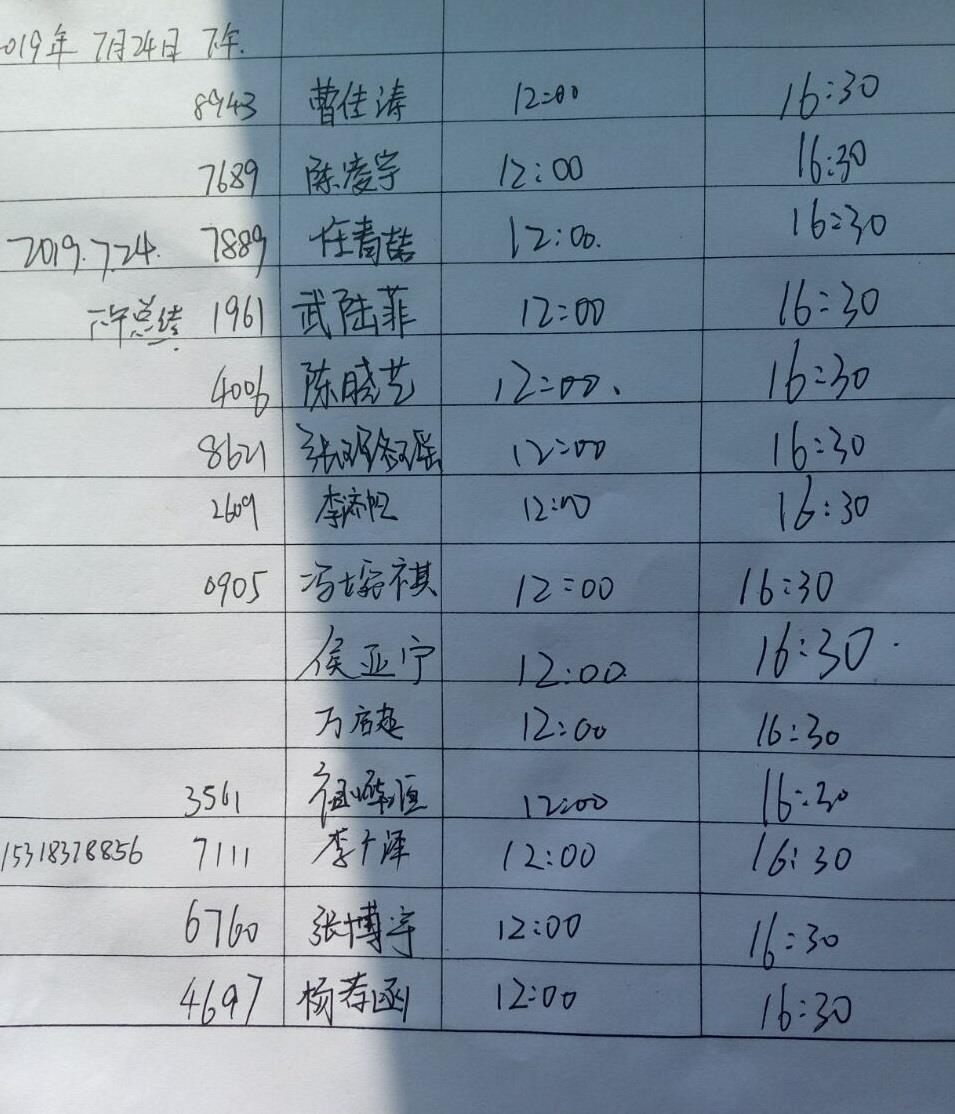 019年 7月24日 下午.
8943 曹佳涛 12:00 16:30
7689 陈凌宇 12:00 16:30
2019.7.24. 7889 任青喆 12:00. 16:30
下午总结 1961 武陆菲 12:00 16:30
4006 陈晓艺 12:00. 16:30
8621 12:00 16:30
2609 12:00 16:30
0905 12:00 16:30
侯亚宁 12:00 16:30
万启超 12:00 16:30
3561 12:00 16:30
15318378856 7111 12:00 16:30
6760 张博宇 12:00 16:30
4697 12:00 16:30